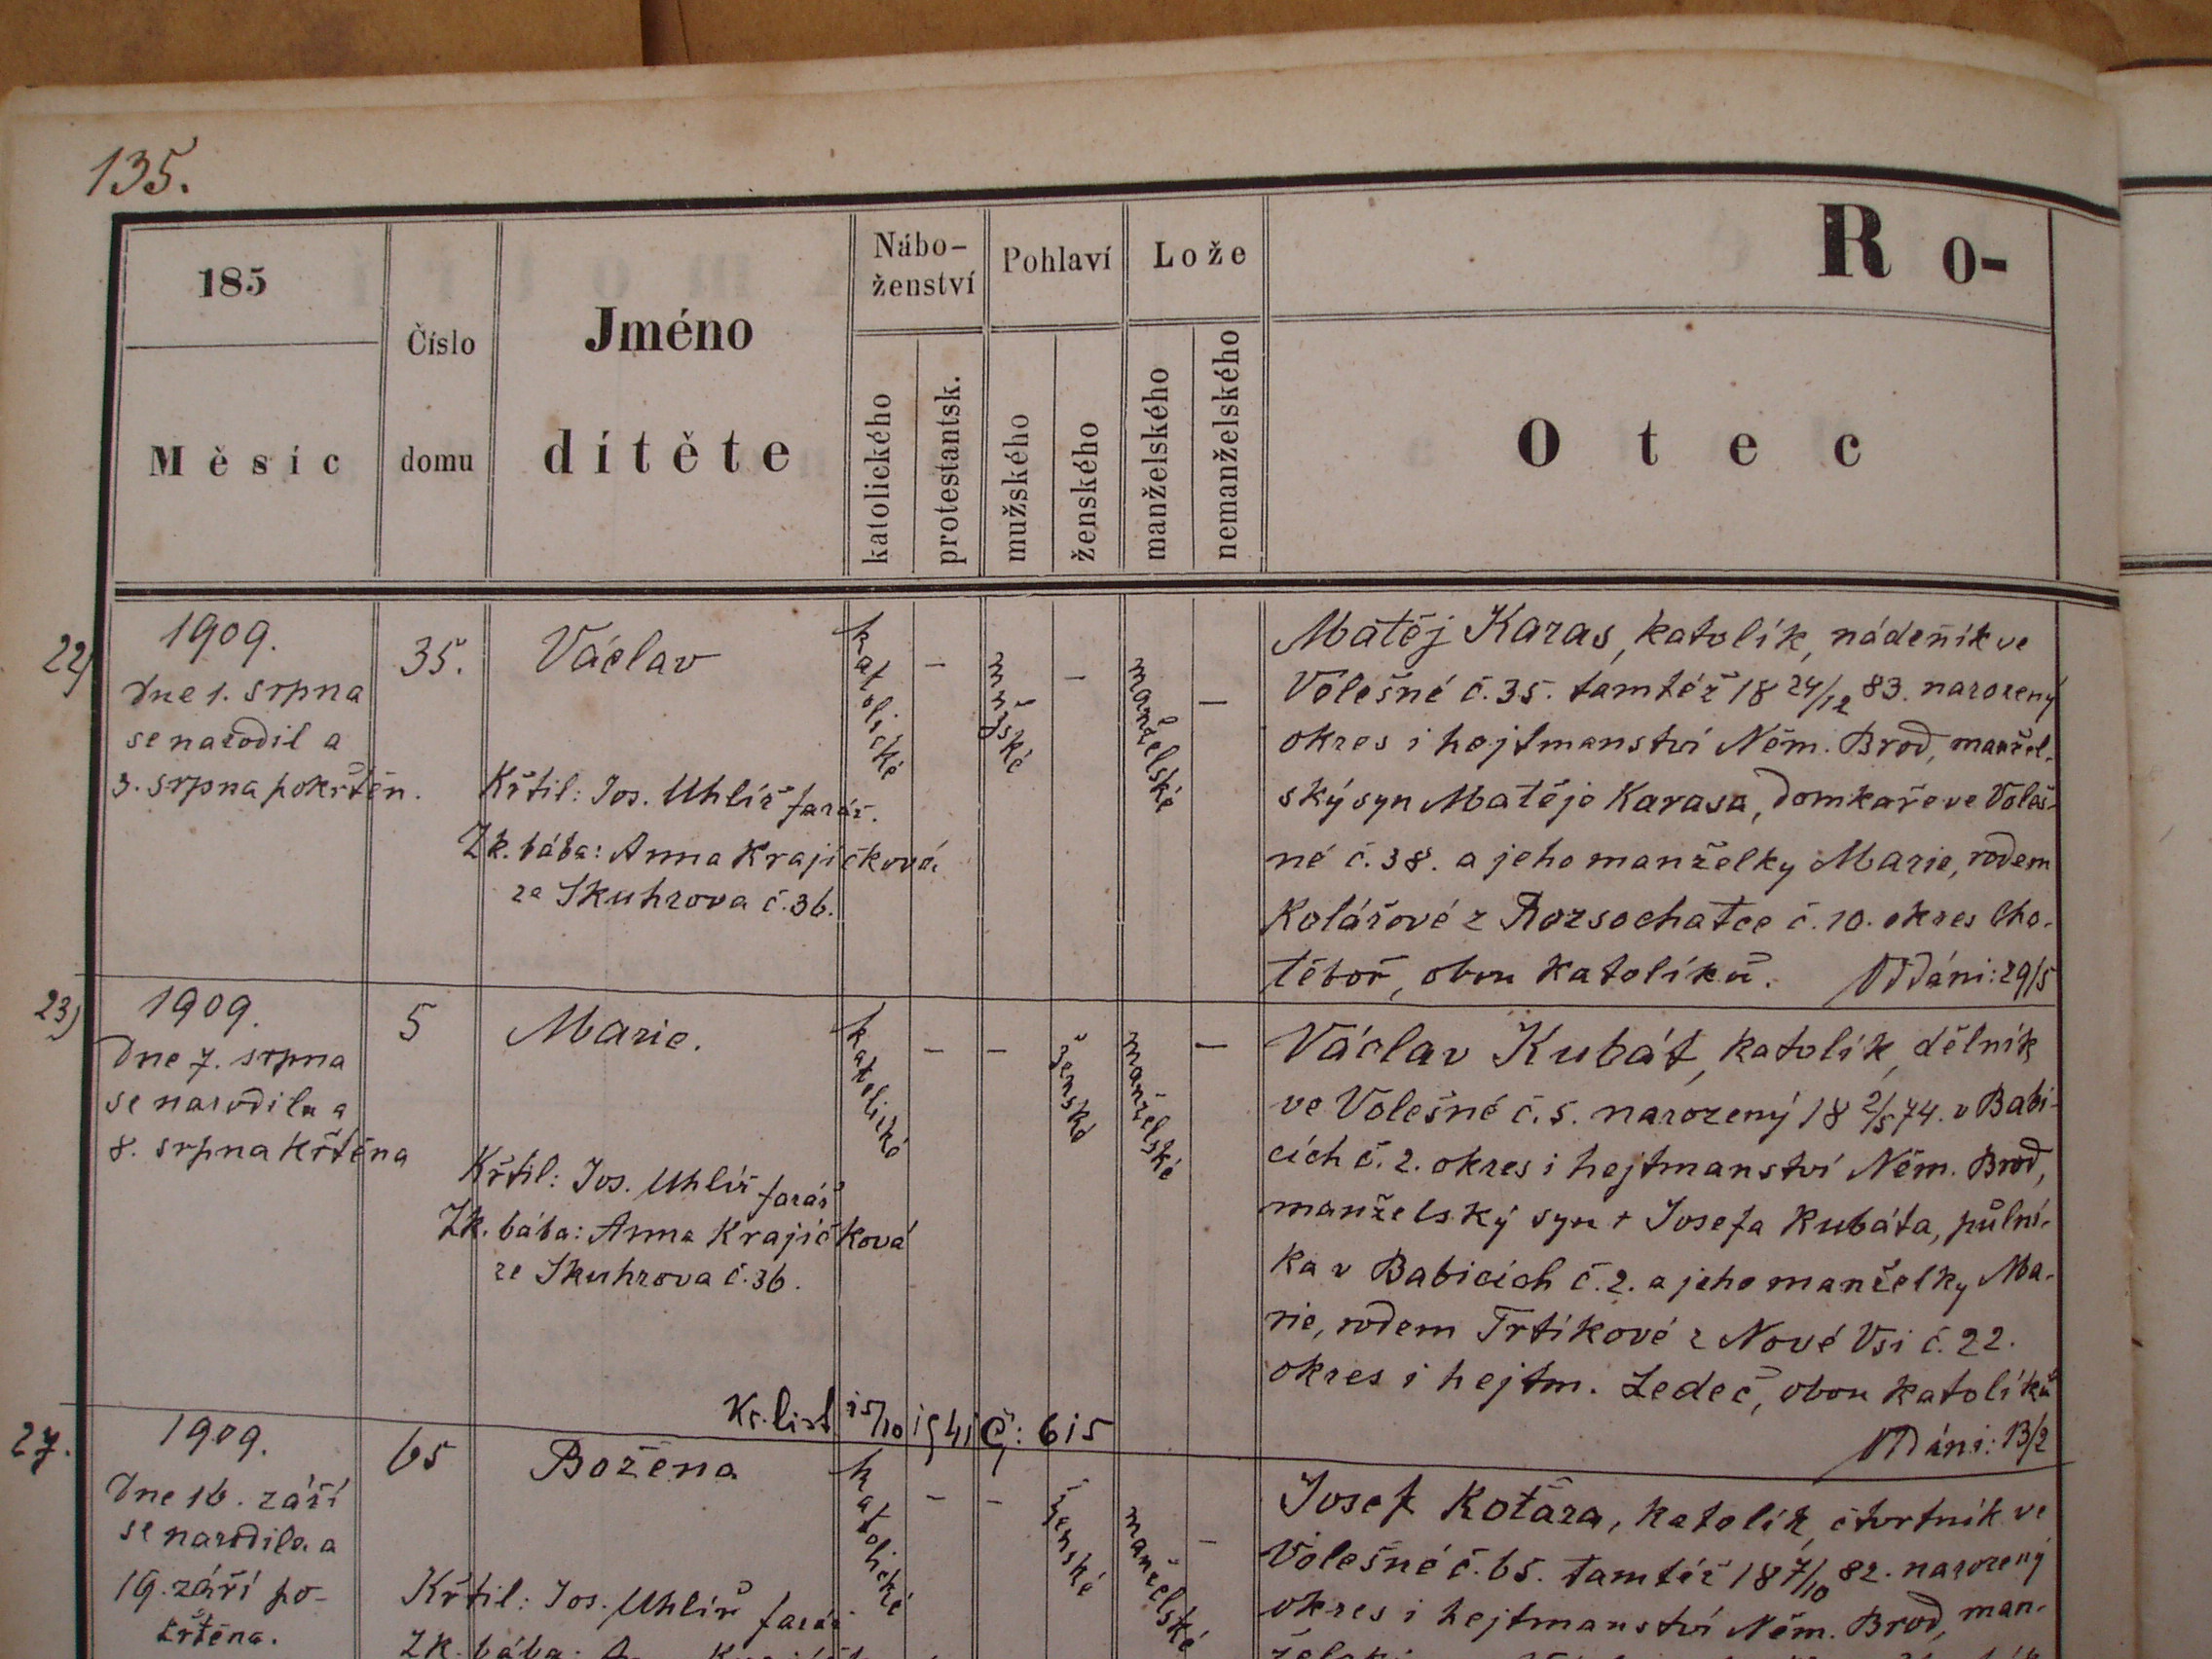 135.
185
Měsíc
Číslo
domu
Jméno
dítěte
Nábo-
ženství
katolického
protestantsk.
Pohlaví
mužského
ženského
Lože
manželského
nemanželského
Ro-
Otec
22)
1909.
Dne 1. srpna
se narodil a
3. srpna pokřtěn.
35.
Václav
Křtil: Jos. Uhlíř farář.
Zk. bába: Anna Krajíčková
ze Skuhrova č. 36.
katolické
–
mužské
–
manželské
–
Matěj Karas, katolík, nádeník ve
Volešné č. 35. tamtéž 18 24/12 83. narozený
okres i hejtmanství Něm. Brod, manžel-
ský syn Matěje Karasa, domkaře ve Voleš-
né č. 38. a jeho manželky Marie, rodem
Kolářové z Rozsochatce č. 10. okres Cho-
těboř, obou katolíků. Oddáni: 29/5
23)
1909.
Dne 7. srpna
se narodila a
8. srpna křtěna
5
Marie.
Křtil: Jos. Uhlíř farář
Zk. bába: Anna Krajíčková
ze Skuhrova č. 36.
Kř. list 15/10 1941 Č: 615
katolické
–
–
ženské
manželské
–
Václav Kubát, katolík, dělník
ve Volešné č. 5. narozený 18 2/5 74. v Babi-
cích č. 2. okres i hejtmanství Něm. Brod,
manželský syn + Josefa Kubáta, půlní-
ka v Babicích č. 2. a jeho manželky Ma-
rie, rodem Trtíkové z Nové Vsi č. 22.
okres i hejtm. Ledeč, obou katolíků
Oddáni: 13/2
27.
1909.
Dne 16. září
se narodila a
19. září po-
křtěna.
65
Božena
Křtil: Jos. Uhlíř farář
Zk. bába:
katolické
–
–
ženské
manželské
–
Josef Kotara, katolík, čtvrtník ve
Volešné č. 65. tamtéž 18 7/10 82. narozený
okres i hejtmanství Něm. Brod, man-